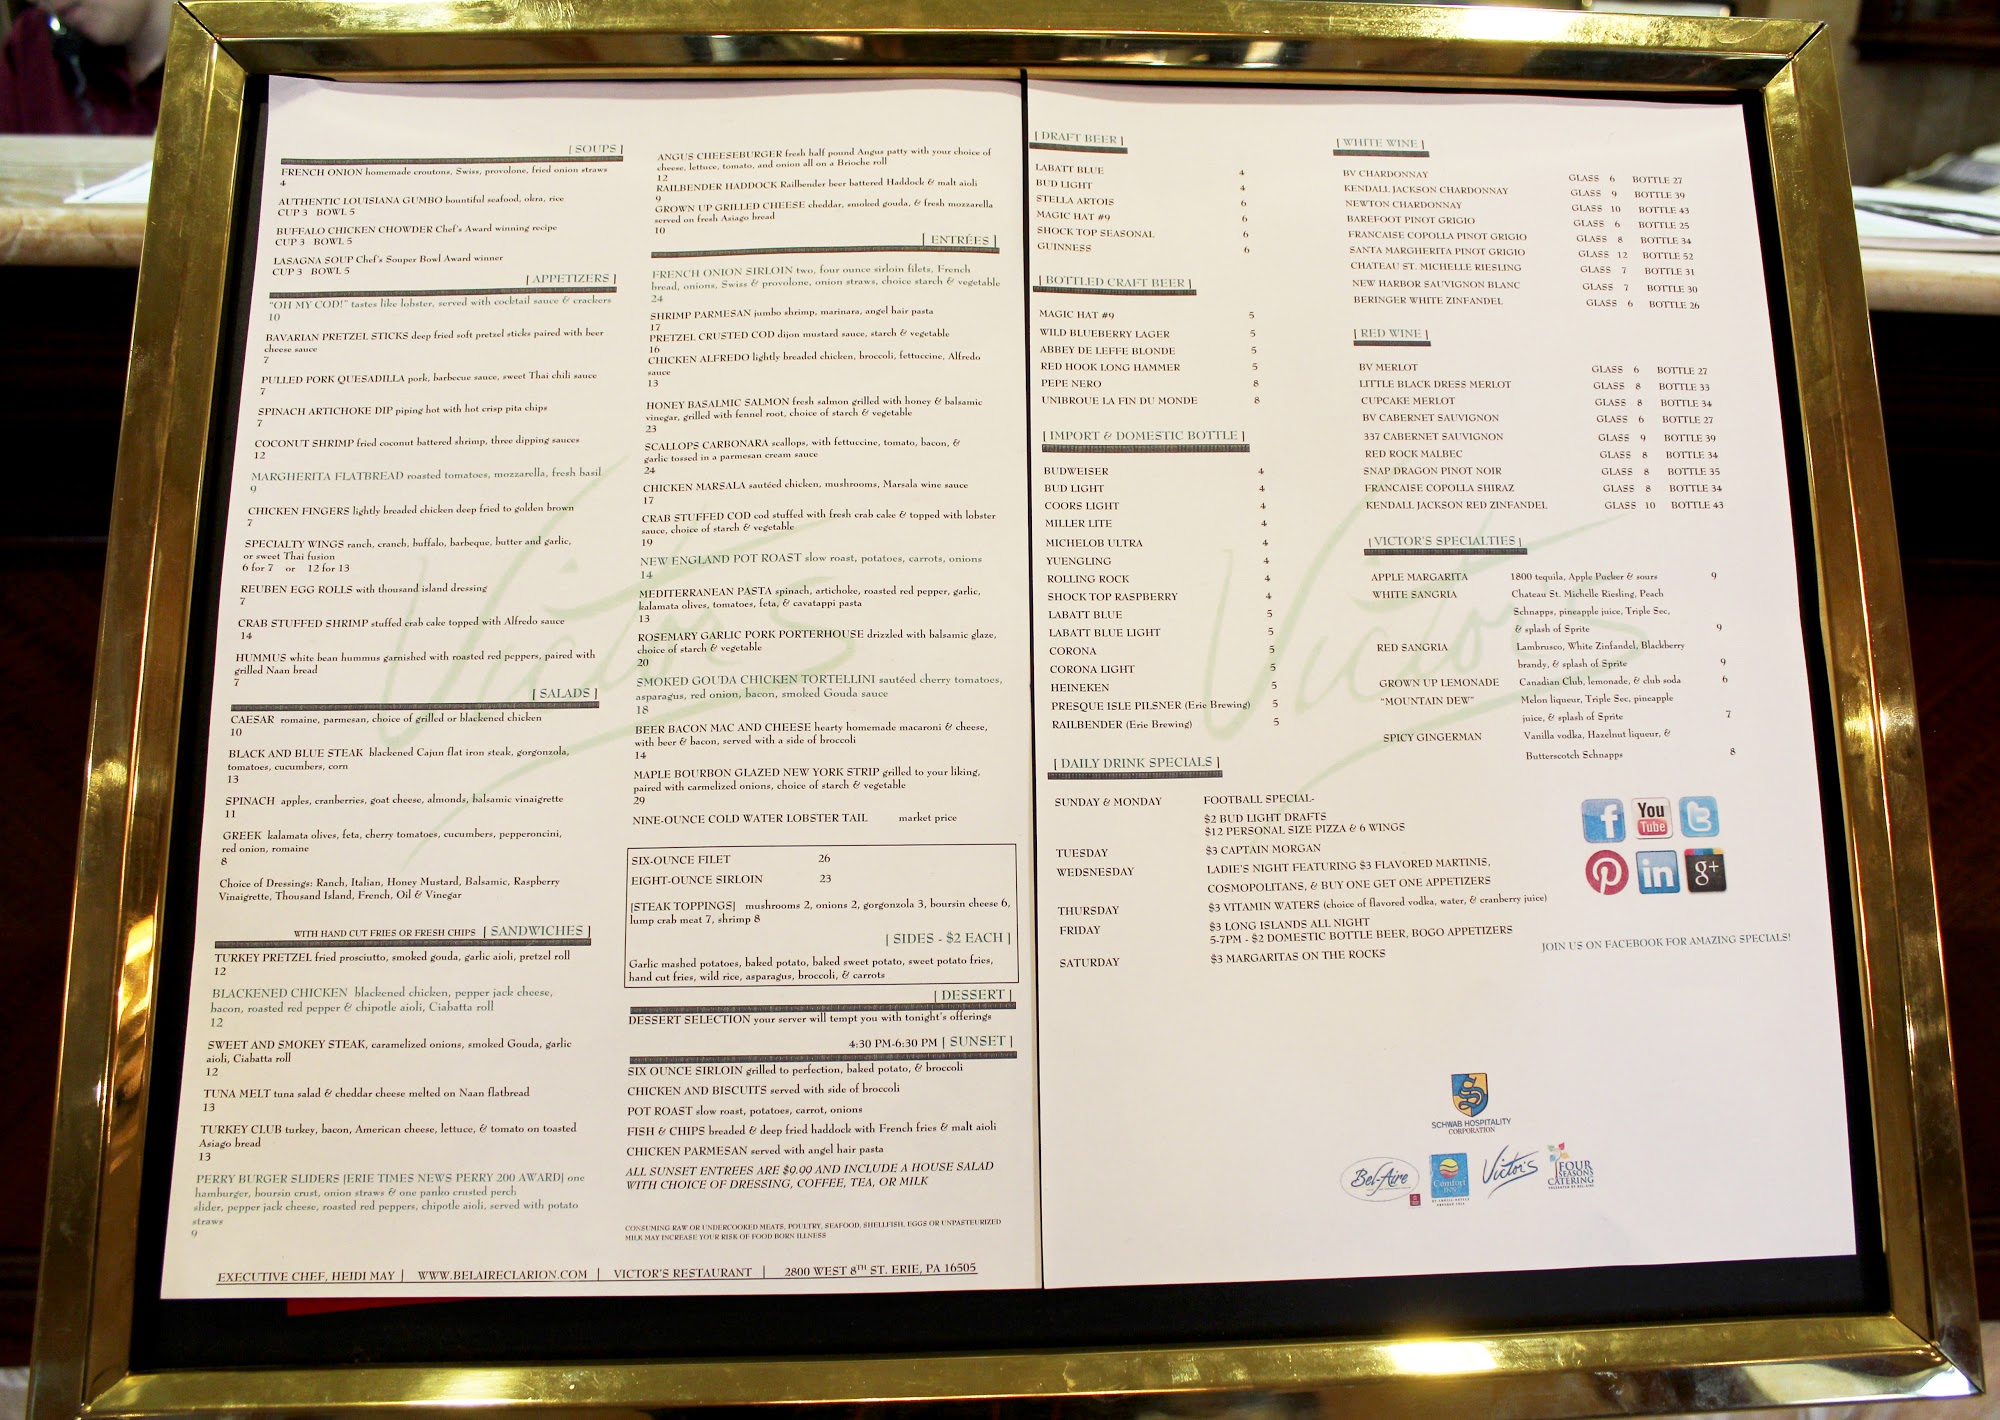 [ SOUPS ]
FRENCH ONION homemade croutons, Swiss, provolone, fried onion straws
4
AUTHENTIC LOUISIANA GUMBO bountiful seafood, okra, rice
CUP 3 BOWL 5
BUFFALO CHICKEN CHOWDER Chef's Award winning recipe
CUP 3 BOWL 5
LASAGNA SOUP Chef's Souper Bowl Award winner
CUP 3 BOWL 5
[ APPETIZERS ]
"OH MY COD!" tastes like lobster, served with cocktail sauce & crackers
10
BAVARIAN PRETZEL STICKS deep fried soft pretzel sticks paired with beer
cheese sauce
7
PULLED PORK QUESADILLA pork, barbecue sauce, sweet Thai chili sauce
7
SPINACH ARTICHOKE DIP piping hot with hot crisp pita chips
7
COCONUT SHRIMP fried coconut battered shrimp, three dipping sauces
12
MARGHERITA FLATBREAD roasted tomatoes, mozzarella, fresh basil
9
CHICKEN FINGERS lightly breaded chicken deep fried to golden brown
7
SPECIALTY WINGS ranch, cranch, buffalo, barbeque, butter and garlic,
or sweet Thai fusion
6 for 7 or 12 for 13
REUBEN EGG ROLLS with thousand island dressing
7
CRAB STUFFED SHRIMP stuffed crab cake topped with Alfredo sauce
14
HUMMUS white bean hummus garnished with roasted red peppers, paired with
grilled Naan bread
7
[ SALADS ]
CAESAR romaine, parmesan, choice of grilled or blackened chicken
10
BLACK AND BLUE STEAK blackened Cajun flat iron steak, gorgonzola,
tomatoes, cucumbers, corn
13
SPINACH apples, cranberries, goat cheese, almonds, balsamic vinaigrette
11
GREEK kalamata olives, feta, cherry tomatoes, cucumbers, pepperoncini,
red onion, romaine
8
Choice of Dressings: Ranch, Italian, Honey Mustard, Balsamic, Raspberry
Vinaigrette, Thousand Island, French, Oil & Vinegar
WITH HAND CUT FRIES OR FRESH CHIPS [ SANDWICHES ]
TURKEY PRETZEL fried prosciutto, smoked gouda, garlic aioli, pretzel roll
12
BLACKENED CHICKEN blackened chicken, pepper jack cheese,
bacon, roasted red pepper & chipotle aioli, Ciabatta roll
12
SWEET AND SMOKEY STEAK, caramelized onions, smoked Gouda, garlic
aioli, Ciabatta roll
12
TUNA MELT tuna salad & cheddar cheese melted on Naan flatbread
13
TURKEY CLUB turkey, bacon, American cheese, lettuce, & tomato on toasted
Asiago bread
13
PERRY BURGER SLIDERS [ERIE TIMES NEWS PERRY 200 AWARD] one
hamburger, boursin crust, onion straws & one panko crusted perch
slider, pepper jack cheese, roasted red peppers, chipotle aioli, served with potato
straws
9
ANGUS CHEESEBURGER fresh half pound Angus patty with your choice of
cheese, lettuce, tomato, and onion all on a Brioche roll
12
RAILBENDER HADDOCK Railbender beer battered Haddock & malt aioli
9
GROWN UP GRILLED CHEESE cheddar, smoked gouda, & fresh mozzarella
served on fresh Asiago bread
10
[ ENTRÉES ]
FRENCH ONION SIRLOIN two, four ounce sirloin filets, French
bread, onions, Swiss & provolone, onion straws, choice starch & vegetable
24
SHRIMP PARMESAN jumbo shrimp, marinara, angel hair pasta
17
PRETZEL CRUSTED COD dijon mustard sauce, starch & vegetable
16
CHICKEN ALFREDO lightly breaded chicken, broccoli, fettuccine, Alfredo
sauce
13
HONEY BASALMIC SALMON fresh salmon grilled with honey & balsamic
vinegar, grilled with fennel root, choice of starch & vegetable
23
SCALLOPS CARBONARA scallops, with fettuccine, tomato, bacon, &
garlic tossed in a parmesan cream sauce
24
CHICKEN MARSALA sautéed chicken, mushrooms, Marsala wine sauce
17
CRAB STUFFED COD cod stuffed with fresh crab cake & topped with lobster
sauce, choice of starch & vegetable
19
NEW ENGLAND POT ROAST slow roast, potatoes, carrots, onions
14
MEDITERRANEAN PASTA spinach, artichoke, roasted red pepper, garlic,
kalamata olives, tomatoes, feta, & cavatappi pasta
13
ROSEMARY GARLIC PORK PORTERHOUSE drizzled with balsamic glaze,
choice of starch & vegetable
20
SMOKED GOUDA CHICKEN TORTELLINI sautéed cherry tomatoes,
asparagus, red onion, bacon, smoked Gouda sauce
18
BEER BACON MAC AND CHEESE hearty homemade macaroni & cheese,
with beer & bacon, served with a side of broccoli
14
MAPLE BOURBON GLAZED NEW YORK STRIP grilled to your liking,
paired with carmelized onions, choice of starch & vegetable
29
NINE-OUNCE COLD WATER LOBSTER TAIL market price
SIX-OUNCE FILET 26
EIGHT-OUNCE SIRLOIN 23
[STEAK TOPPINGS] mushrooms 2, onions 2, gorgonzola 3, boursin cheese 6,
lump crab meat 7, shrimp 8
[ SIDES - $2 EACH ]
Garlic mashed potatoes, baked potato, baked sweet potato, sweet potato fries,
hand cut fries, wild rice, asparagus, broccoli, & carrots
[ DESSERT ]
DESSERT SELECTION your server will tempt you with tonight's offerings
4:30 PM-6:30 PM [ SUNSET ]
SIX OUNCE SIRLOIN grilled to perfection, baked potato, & broccoli
CHICKEN AND BISCUITS served with side of broccoli
POT ROAST slow roast, potatoes, carrot, onions
FISH & CHIPS breaded & deep fried haddock with French fries & malt aioli
CHICKEN PARMESAN served with angel hair pasta
ALL SUNSET ENTREES ARE $9.99 AND INCLUDE A HOUSE SALAD
WITH CHOICE OF DRESSING, COFFEE, TEA, OR MILK
CONSUMING RAW OR UNDERCOOKED MEATS, POULTRY, SEAFOOD, SHELLFISH, EGGS OR UNPASTEURIZED
MILK MAY INCREASE YOUR RISK OF FOOD BORN ILLNESS
EXECUTIVE CHEF, HEIDI MAY | WWW.BELAIRECLARION.COM | VICTOR'S RESTAURANT | 2800 WEST 8TH ST. ERIE, PA 16505
Victor's
[ DRAFT BEER ]
LABATT BLUE 4
BUD LIGHT 4
STELLA ARTOIS 6
MAGIC HAT #9 6
SHOCK TOP SEASONAL 6
GUINNESS 6
[ BOTTLED CRAFT BEER ]
MAGIC HAT #9 5
WILD BLUEBERRY LAGER 5
ABBEY DE LEFFE BLONDE 5
RED HOOK LONG HAMMER 5
PEPE NERO 8
UNIBROUE LA FIN DU MONDE 8
[ IMPORT & DOMESTIC BOTTLE ]
BUDWEISER 4
BUD LIGHT 4
COORS LIGHT 4
MILLER LITE 4
MICHELOB ULTRA 4
YUENGLING 4
ROLLING ROCK 4
SHOCK TOP RASPBERRY 4
LABATT BLUE 5
LABATT BLUE LIGHT 5
CORONA 5
CORONA LIGHT 5
HEINEKEN 5
PRESQUE ISLE PILSNER (Erie Brewing) 5
RAILBENDER (Erie Brewing) 5
[ DAILY DRINK SPECIALS ]
SUNDAY & MONDAY FOOTBALL SPECIAL-
$2 BUD LIGHT DRAFTS
$12 PERSONAL SIZE PIZZA & 6 WINGS
TUESDAY $3 CAPTAIN MORGAN
WEDNESDAY LADIE'S NIGHT FEATURING $3 FLAVORED MARTINIS,
COSMOPOLITANS, & BUY ONE GET ONE APPETIZERS
THURSDAY $3 VITAMIN WATERS (choice of flavored vodka, water, & cranberry juice)
FRIDAY $3 LONG ISLANDS ALL NIGHT
5-7PM - $2 DOMESTIC BOTTLE BEER, BOGO APPETIZERS
SATURDAY $3 MARGARITAS ON THE ROCKS
[ WHITE WINE ]
BV CHARDONNAY GLASS 6 BOTTLE 27
KENDALL JACKSON CHARDONNAY GLASS 9 BOTTLE 39
NEWTON CHARDONNAY GLASS 10 BOTTLE 43
BAREFOOT PINOT GRIGIO GLASS 6 BOTTLE 25
FRANCAISE COPOLLA PINOT GRIGIO GLASS 8 BOTTLE 34
SANTA MARGHERITA PINOT GRIGIO GLASS 12 BOTTLE 52
CHATEAU ST. MICHELLE RIESLING GLASS 7 BOTTLE 31
NEW HARBOR SAUVIGNON BLANC GLASS 7 BOTTLE 30
BERINGER WHITE ZINFANDEL GLASS 6 BOTTLE 26
[ RED WINE ]
BV MERLOT GLASS 6 BOTTLE 27
LITTLE BLACK DRESS MERLOT GLASS 8 BOTTLE 33
CUPCAKE MERLOT GLASS 8 BOTTLE 34
BV CABERNET SAUVIGNON GLASS 6 BOTTLE 27
337 CABERNET SAUVIGNON GLASS 9 BOTTLE 39
RED ROCK MALBEC GLASS 8 BOTTLE 34
SNAP DRAGON PINOT NOIR GLASS 8 BOTTLE 35
FRANCAISE COPOLLA SHIRAZ GLASS 8 BOTTLE 34
KENDALL JACKSON RED ZINFANDEL GLASS 10 BOTTLE 43
[ VICTOR'S SPECIALTIES ]
APPLE MARGARITA 1800 tequila, Apple Pucker & sours 9
WHITE SANGRIA Chateau St. Michelle Riesling, Peach
Schnapps, pineapple juice, Triple Sec,
& splash of Sprite 9
RED SANGRIA Lambrusco, White Zinfandel, Blackberry
brandy, & splash of Sprite 9
GROWN UP LEMONADE Canadian Club, lemonade, & club soda 6
"MOUNTAIN DEW" Melon liqueur, Triple Sec, pineapple
juice, & splash of Sprite 7
SPICY GINGERMAN Vanilla vodka, Hazelnut liqueur, &
Butterscotch Schnapps 8
f You Tube t
P in g+
JOIN US ON FACEBOOK FOR AMAZING SPECIALS!
Victor's
S
SCHWAB HOSPITALITY
CORPORATION
Bel-Aire
Comfort
INN
Victor's
FOUR
SEASONS
CATERING